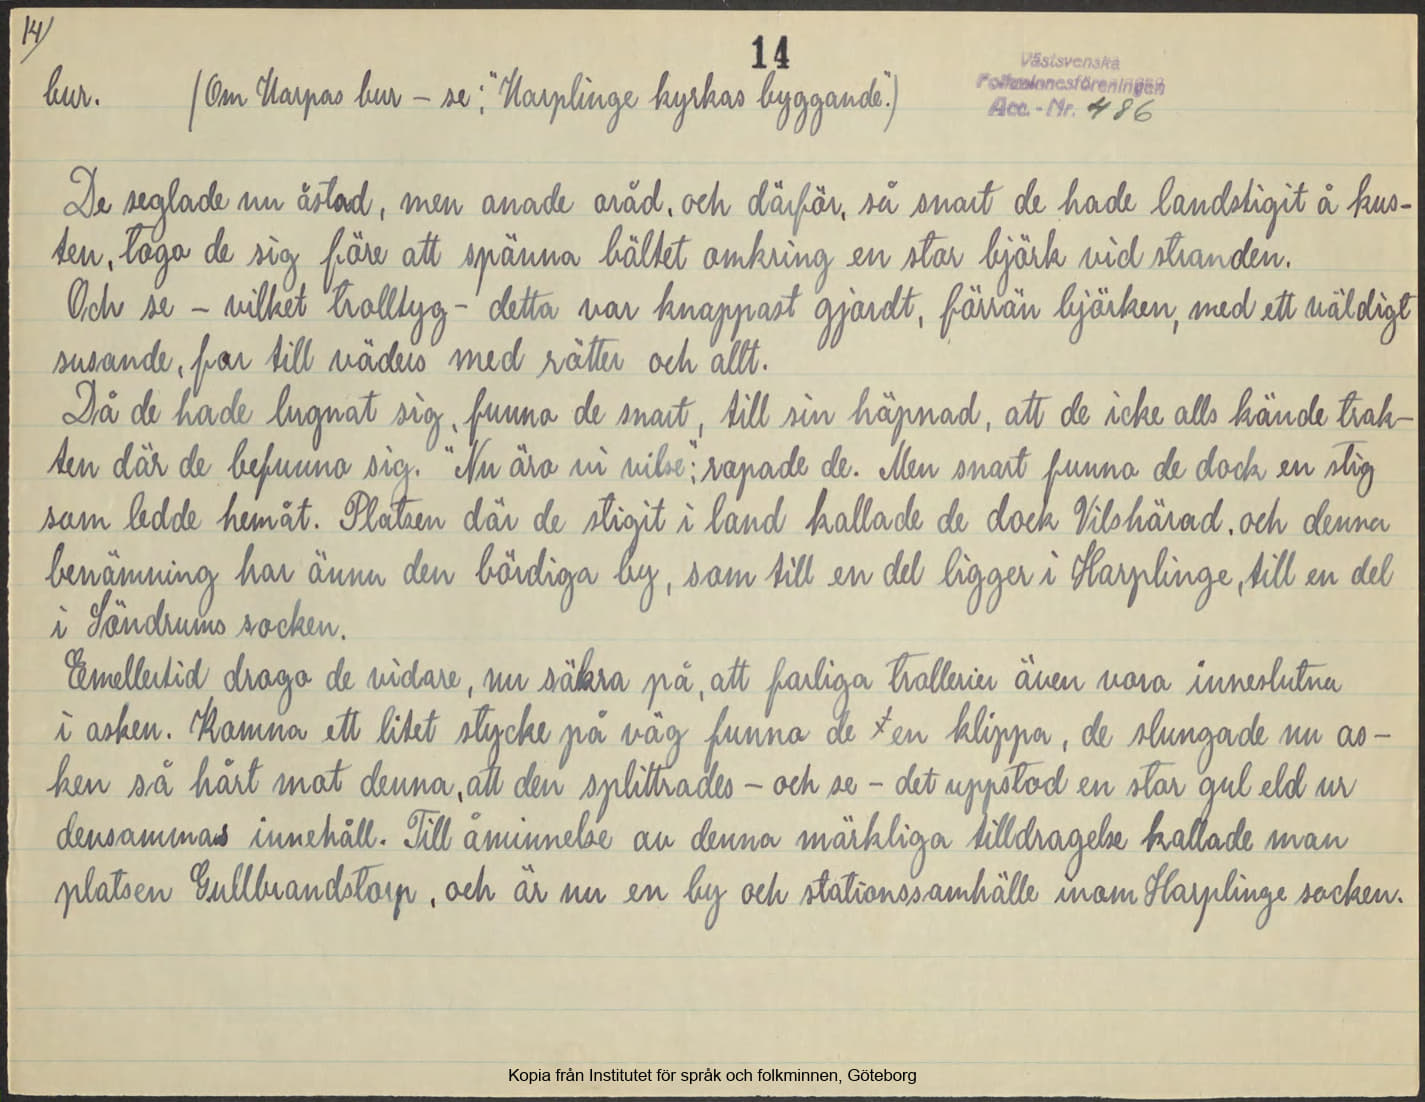 14/
14
Västsvenska
Folkminnesföreningen
Acc.-Nr. 486
bur. (Om Harpas bur – se: "Harplinge kyrkas byggande".)
De seglade nu åstad, men anade oråd, och därför, så snart de hade landstigit å kus-
ten, togo de sig före att spänna bältet omkring en stor björk vid stranden.
Och se – vilket trolltyg – detta var knappast gjordt, förrän björken, med ett väldigt
susande, for till väders med rötter och allt.
Då de hade lugnat sig, funno de snart, till sin häpnad, att de icke alls kände trak-
ten där de befunno sig. "Nu äro vi vilse", ropade de. Men snart funno de dock en stig
som ledde hemåt. Platsen där de stigit i land kallade de dock Vilshärad, och denna
benämning har ännu den bördiga by, som till en del ligger i Harplinge, till en del
i Söndrums socken.
Emellertid drogo de vidare, nu säkra på, att farliga trollerier även voro inneslutna
i asken. Komna ett litet stycke på väg funno de en klippa, de slungade nu as-
ken så hårt mot denna, att den splittrades – och se – det uppstod en stor gul eld ur
densammas innehåll. Till åminnelse av denna märkliga tilldragelse kallade man
platsen Gullbrandstorp, och är nu en by och stationssamhälle inom Harplinge socken.
Kopia från Institutet för språk och folkminnen, Göteborg